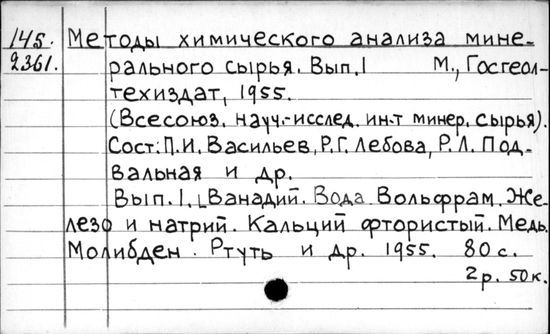 145. Методы химического анализа мине-
2361. рального сырья. Вып. 1 М., Госгеол-
техиздат, 1955.
(Всесоюз. науч.-исслед. ин-т минер. сырья).
Сост: П.И. Васильев, Р.Г. Лебова, Р.Л. Под-
вальная и др.
Вып. 1. Ванадий. Вода. Вольфрам. Же-
лезо и натрий. Кальций фтористый. Медь.
Молибден. Ртуть и др. 1955. 80 с.
2 р. 50 к.